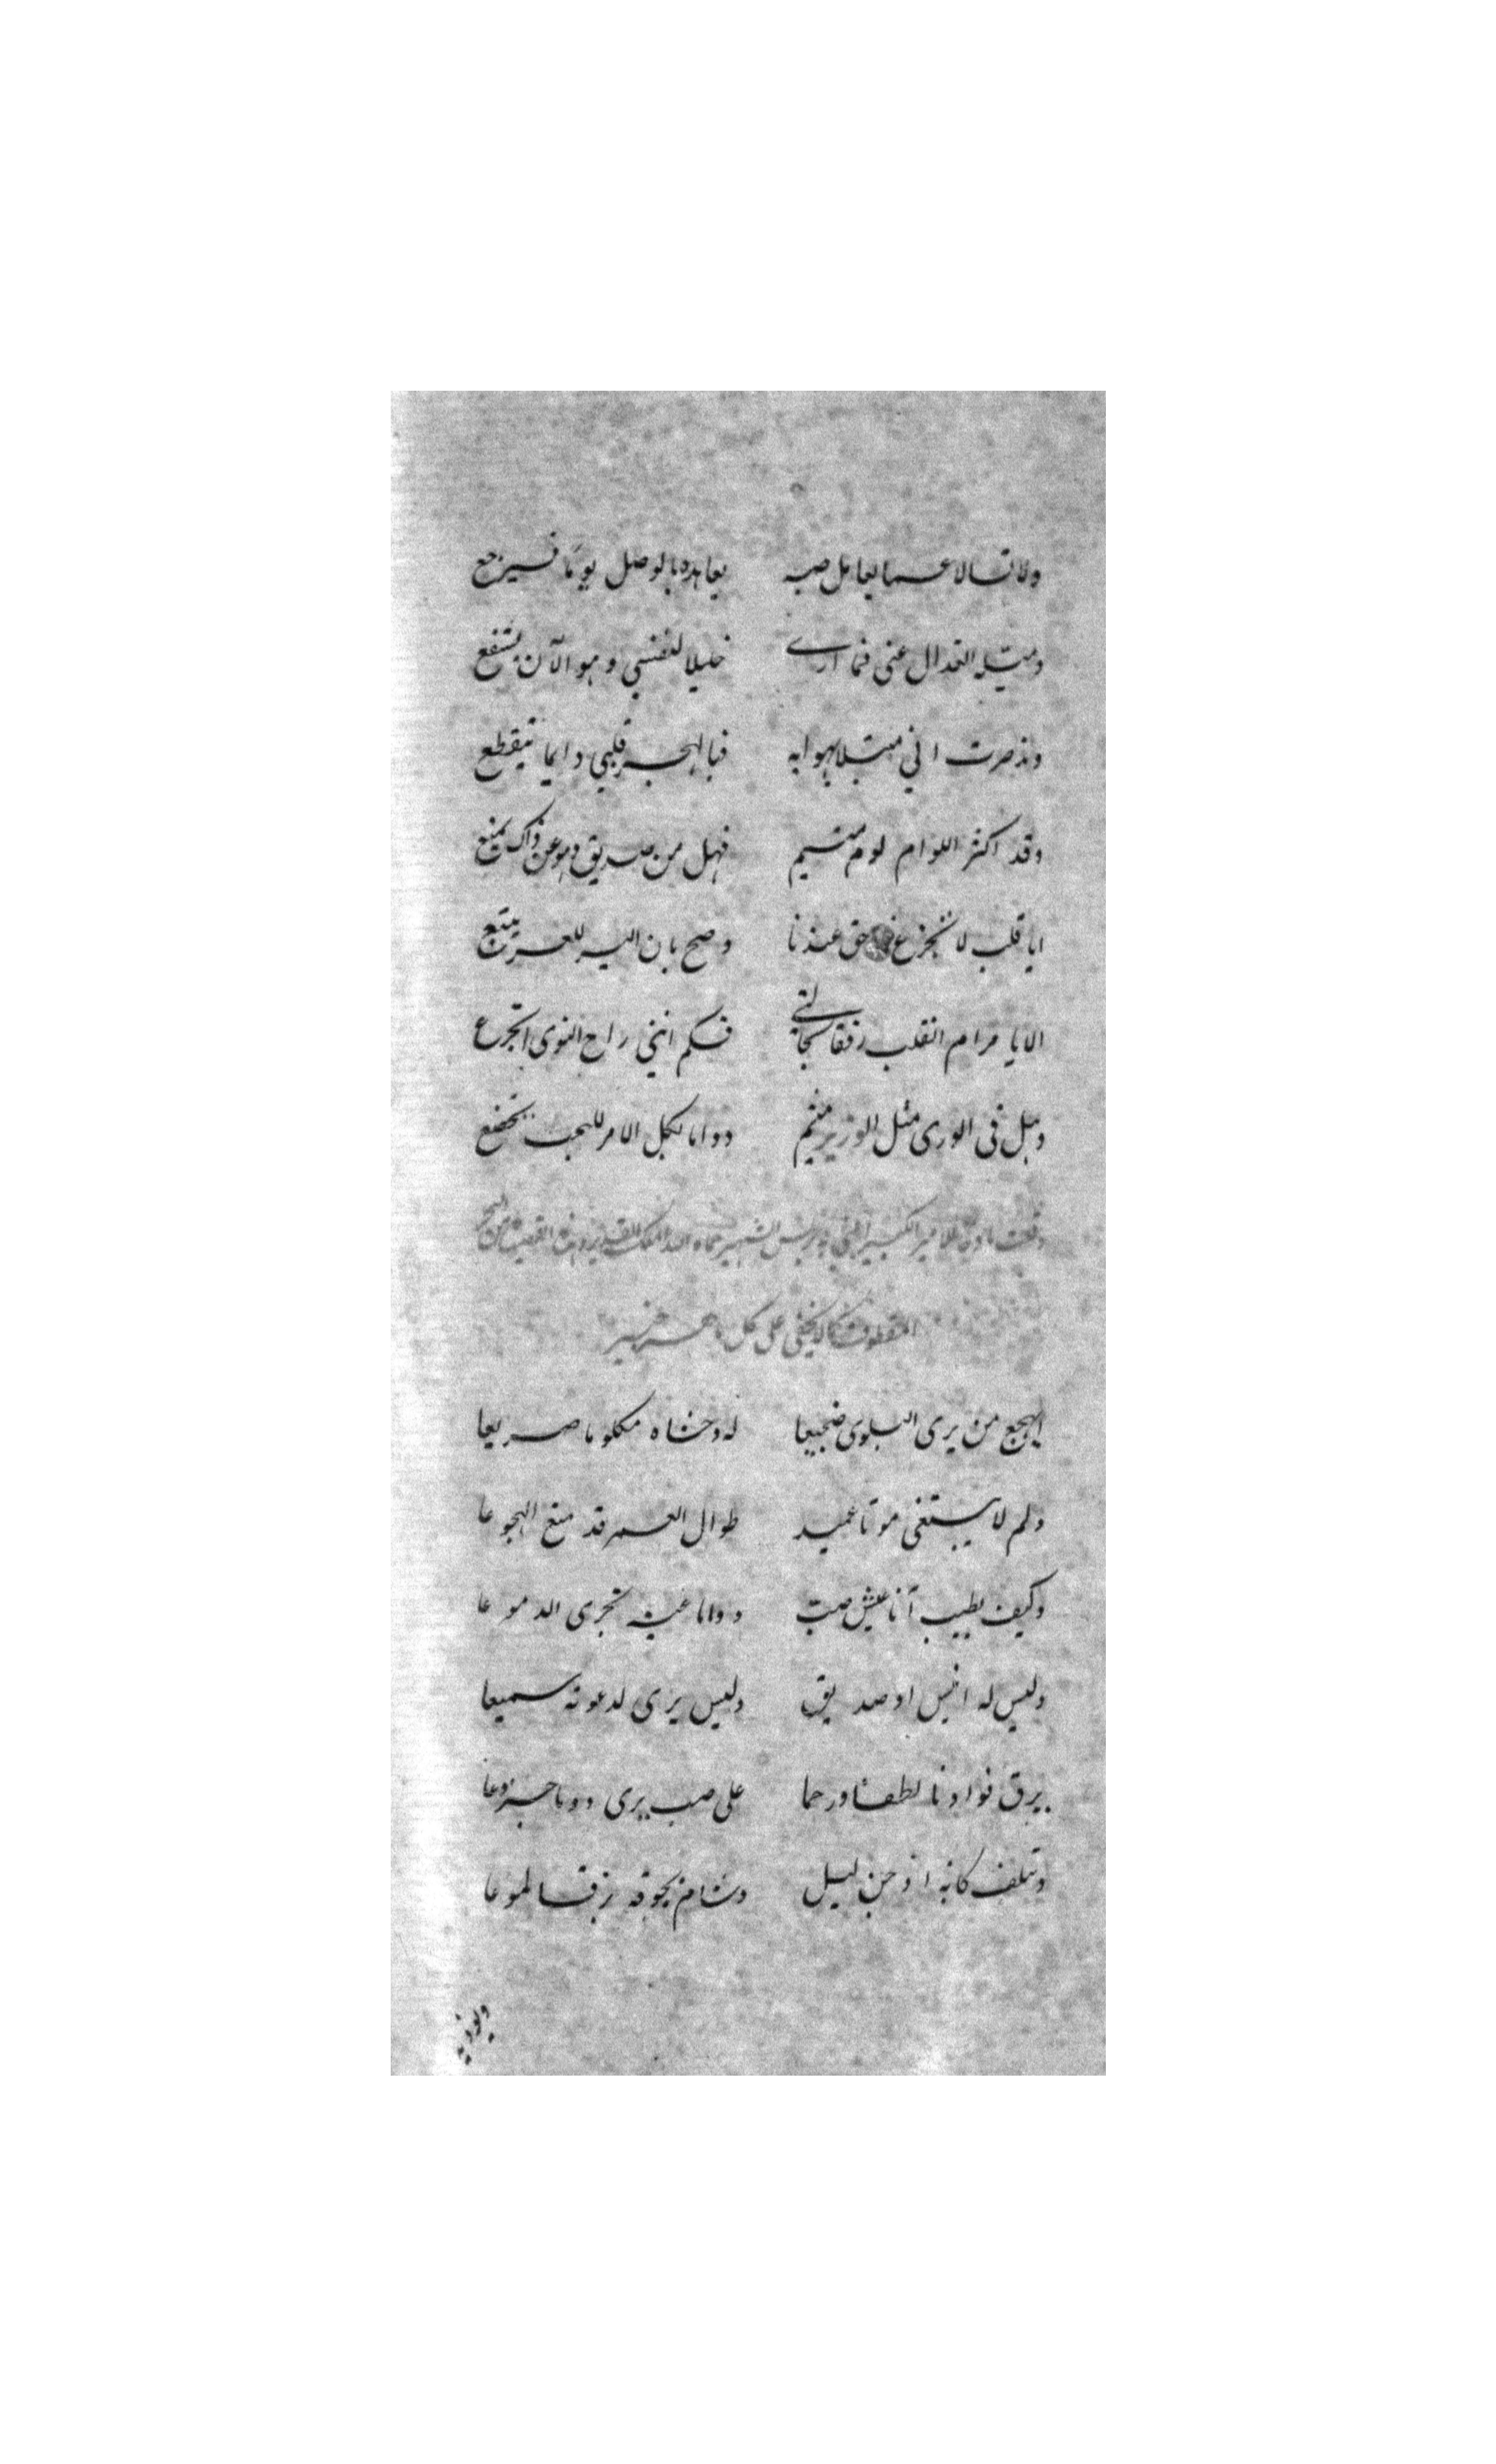 ولا تسالا عما يعامل صبه يعاهده بالوصل يوما فسيرجع
ومتيله العذال عنى فما ارى خليلا لنفسي وهو الآن يشفع
ومذ صرت اني مبتلا بهوا به فبالهجر قلبي دايما يتقطع
وقد اكثر اللوام لوم متيم فهل من صديق وهو عن ذاك يمنع
ايا قلب لا تجزع حق عندنا وصح بان اليسر للعسر يتبع
الا يا مرام القلب رفقا بحالتى فكم اننى راح النوى اتجرع
وهل فى الورى مثل الوزير متيم دواما لكل الامر للحب يخضع
للامير الكبير الشهير حماه الله الملك القدير من البحر
على كل خبير
ايهجع من يرى البلوى ضجيعا له وحشاه مكلوما صريعا
ولم لا يبتغى موتا عميد طوال العمر قد منع الهجوعا
وكيف يطيب آنا عيش صب دواما عينه تجرى الدموعا
وليس له انيس او صديق وليس يرى لدعوته سميعا
يرق فوادنا لطفا ورحما على صب يرى دوما جزوعا
وتلف كانه اذ جن ليل وشام بجوفه برقا لموعا